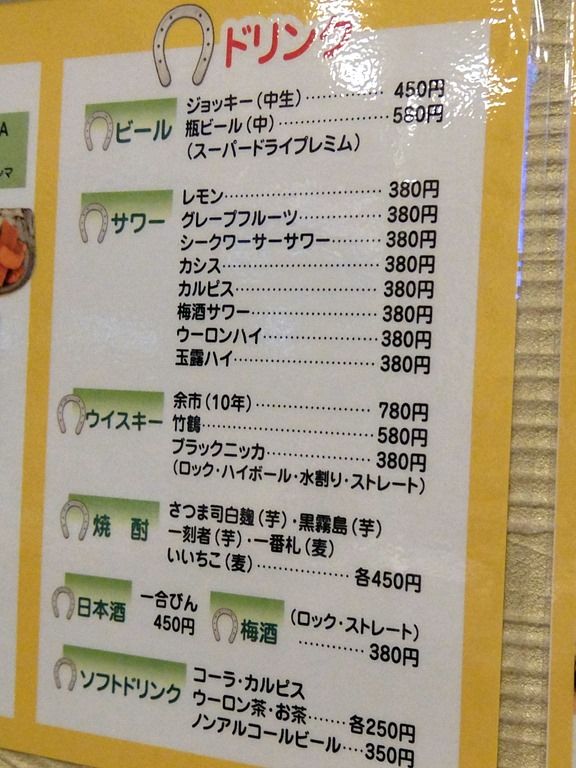 ドリンク
ビール
ジョッキー(中生)………… 450円
瓶ビール(中)………… 580円
(スーパードライプレミム)
サワー
レモン………… 380円
グレープフルーツ………… 380円
シークワーサーサワー……… 380円
カシス………… 380円
カルピス………… 380円
梅酒サワー………… 380円
ウーロンハイ………… 380円
玉露ハイ………… 380円
ウイスキー
余市(10年)………… 780円
竹鶴………… 580円
ブラックニッカ………… 380円
(ロック・ハイボール・水割り・ストレート)
焼 酎
さつま司白麹(芋)・黒霧島(芋)
一刻者(芋)・一番札(麦)
いいちこ(麦)………… 各450円
日本酒
一合びん
450円
梅酒
(ロック・ストレート)
………… 380円
ソフトドリンク
コーラ・カルピス
ウーロン茶・お茶……各250円
ノンアルコールビール…350円
A